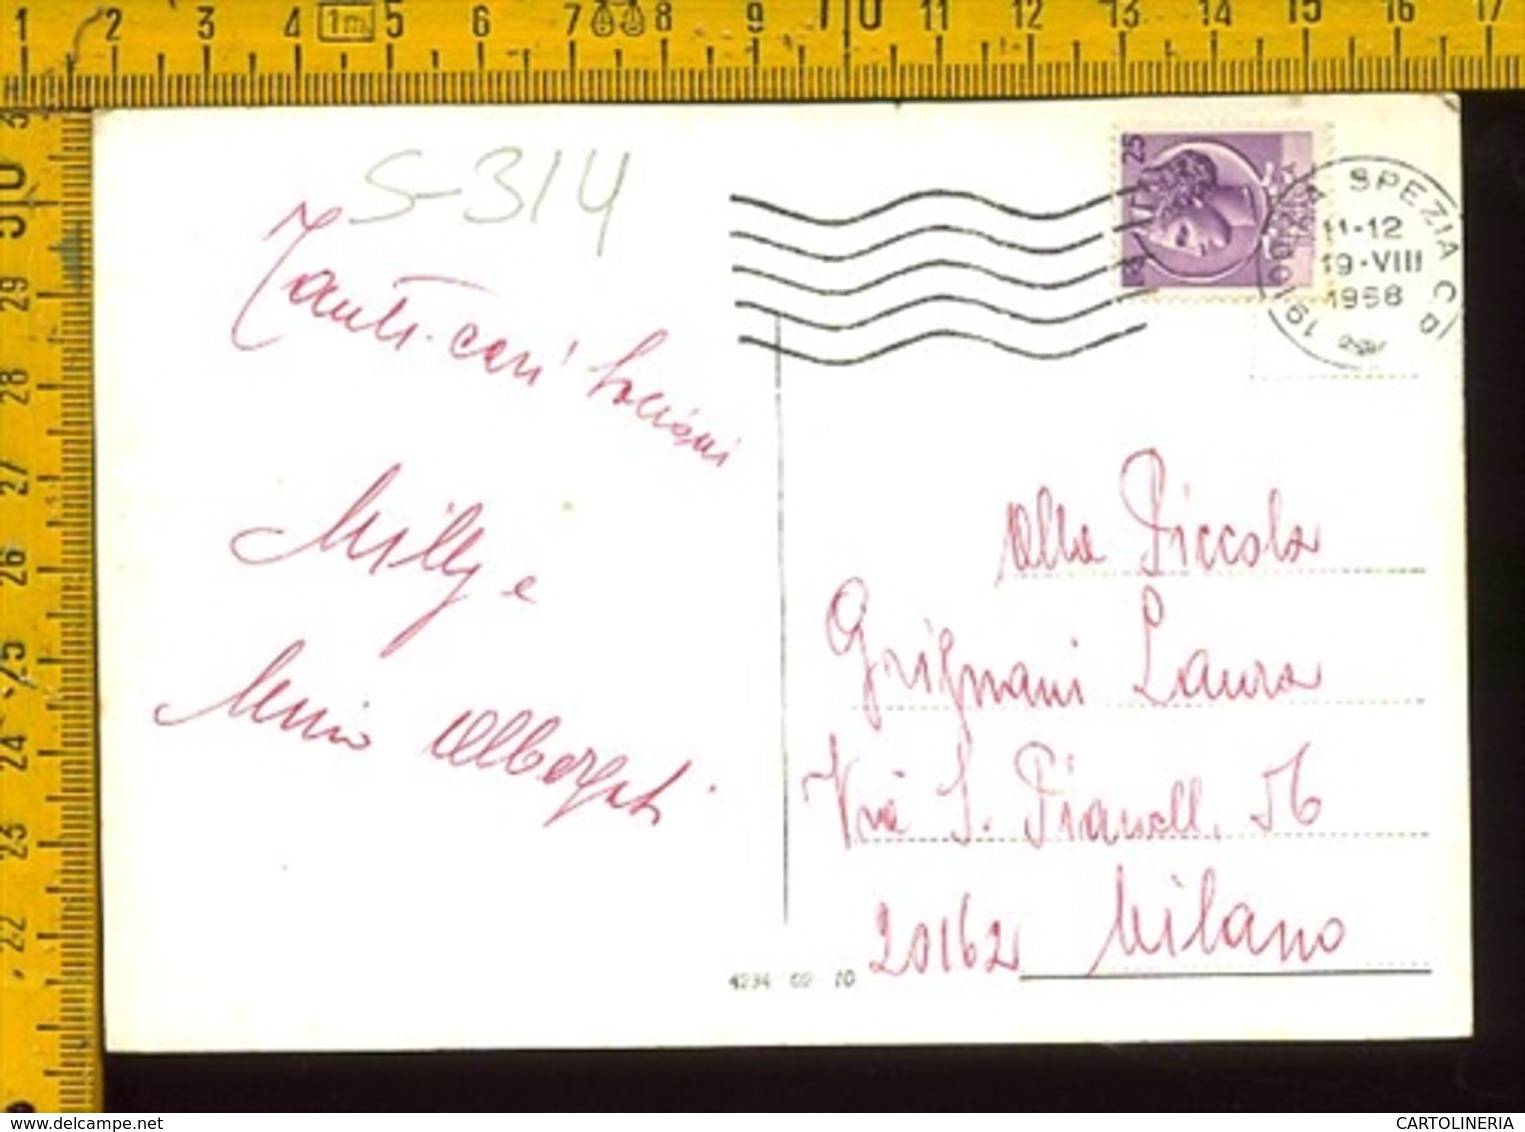 1 2 3 4 1m 5 6 7 8 9 10 11 12 13 14 15 16 17
30 29 28 27 26 25 24 23 22
S-314
25
LA SPEZIA C P
11-12
19-VIII
1968
Tanti cari bacioni
Milly e
Alla Piccola
Grignani Laura
Via S. Pianell. 56
20162 Milano
4294 02 10
CARTOLINERIA